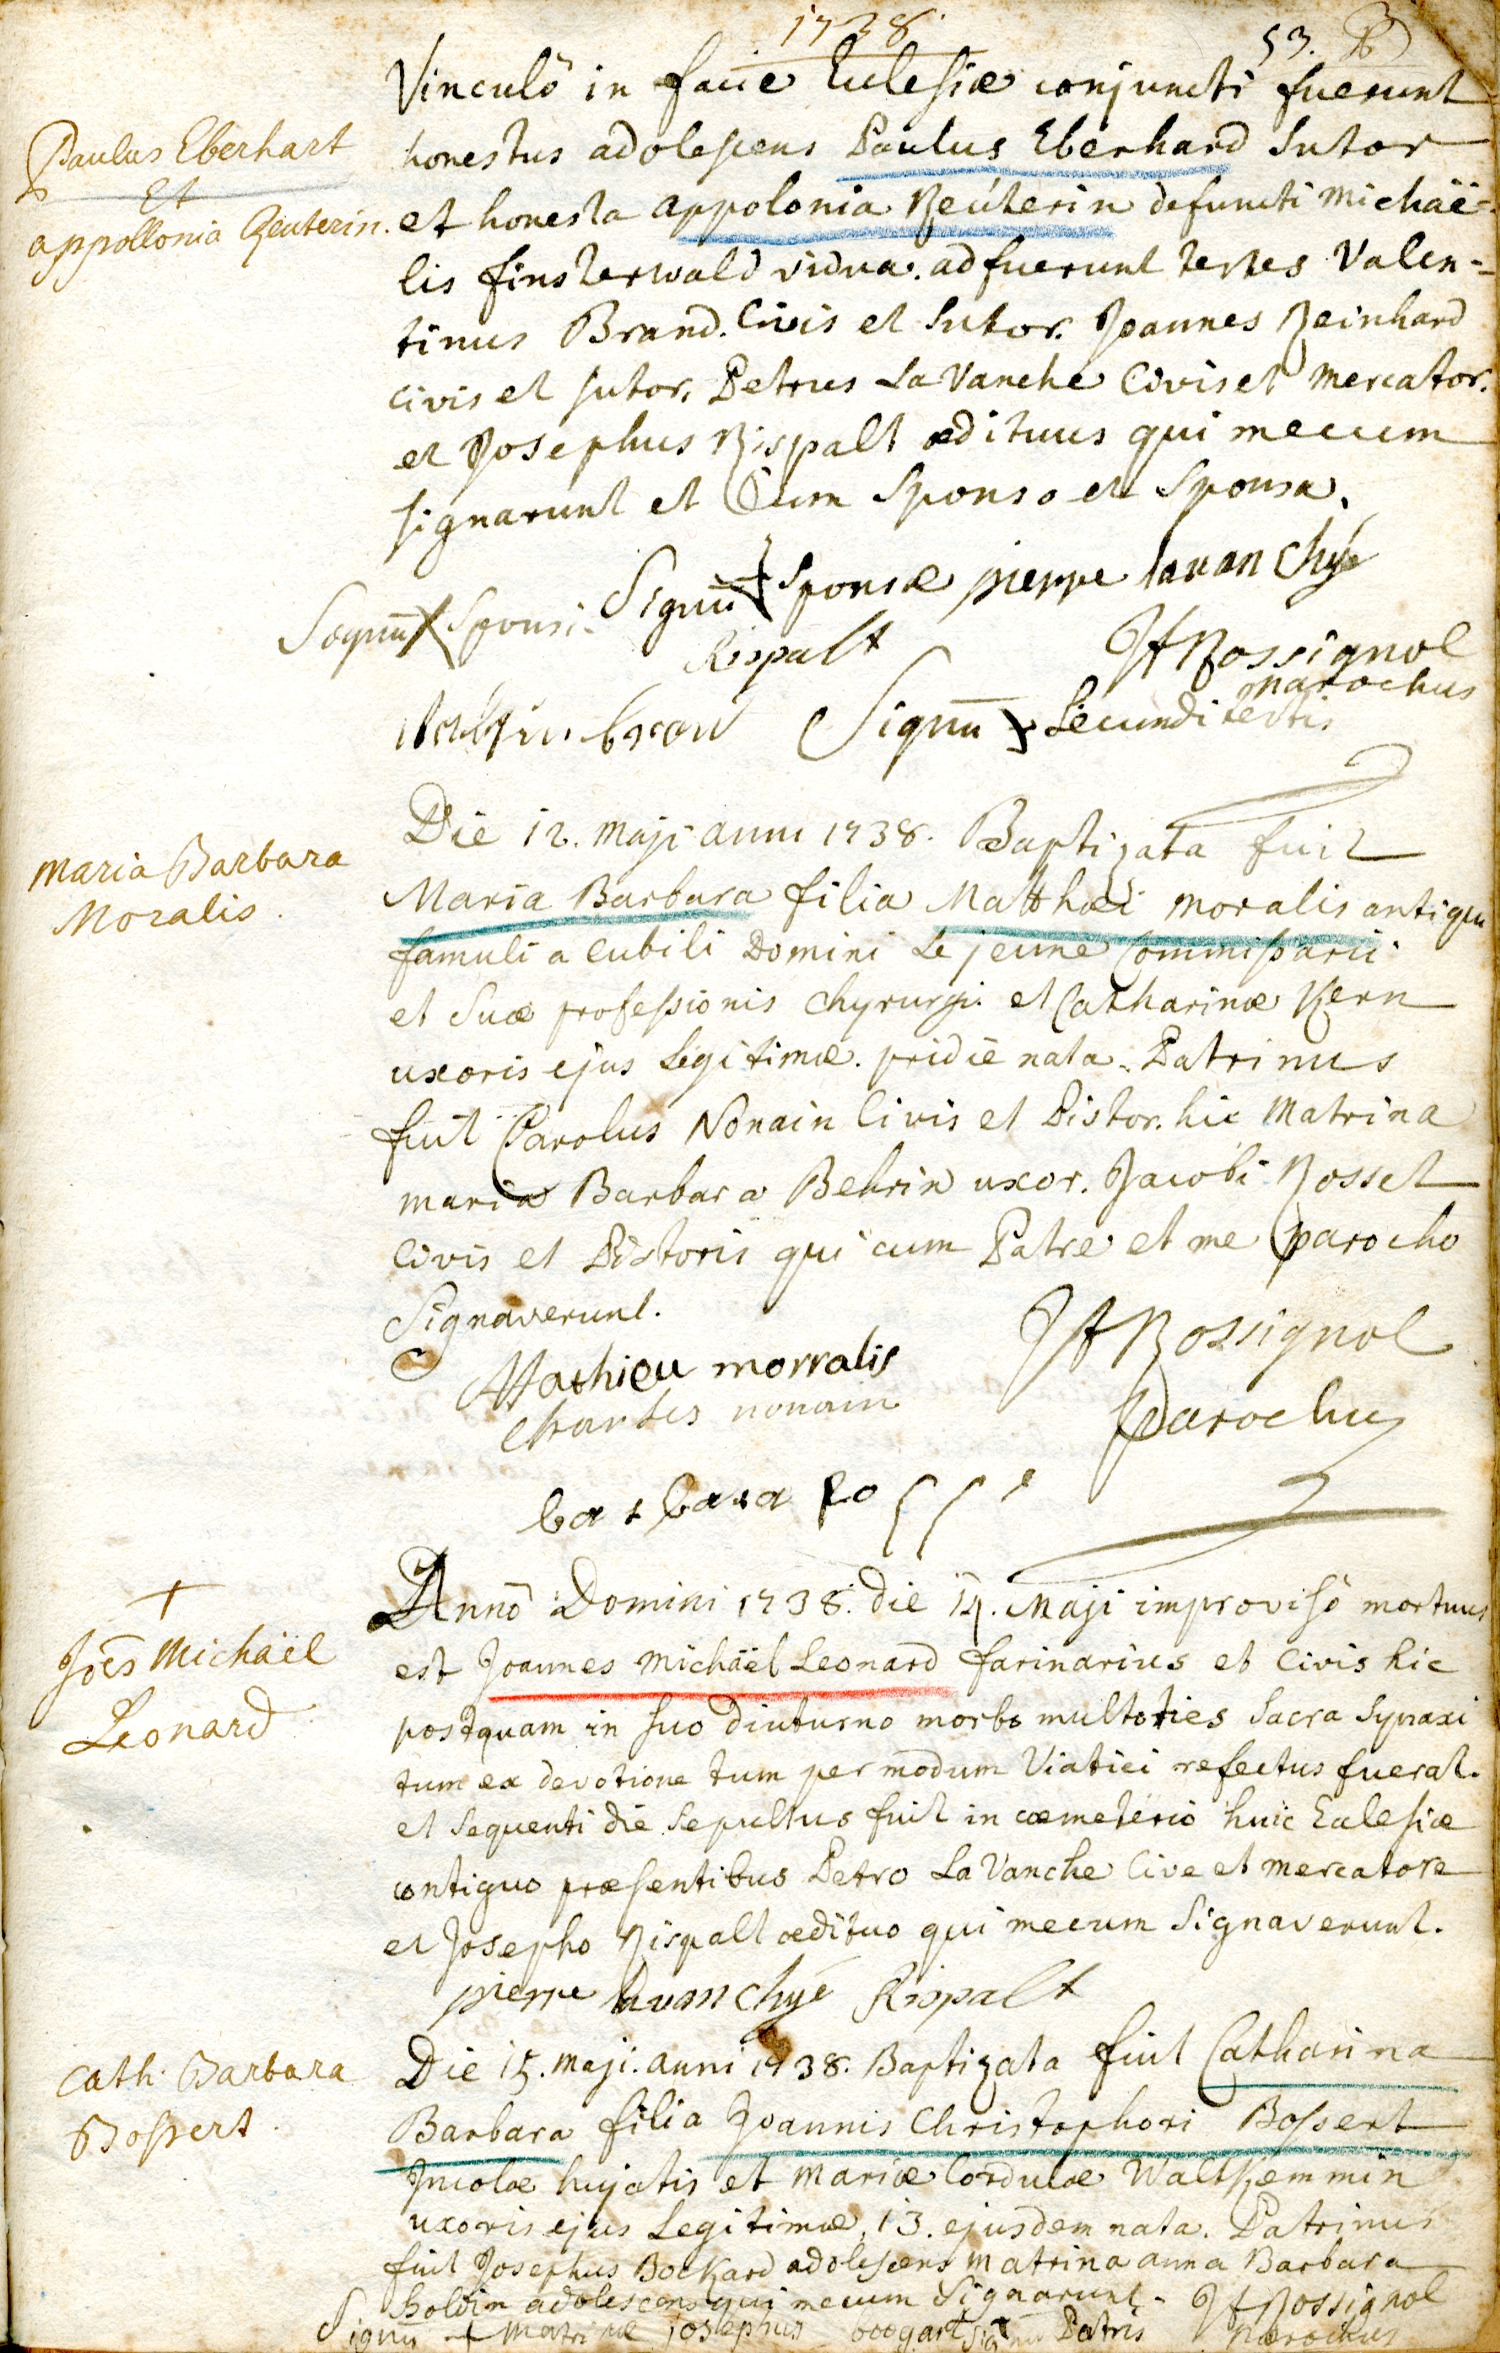 1738.
53.
Vinculô in facie Eclesiæ conjuncti fuerunt
Paulus Eberhart
Et
appollonia Reuterin.
honestus adolescens Paulus Eberhard Sutor
et honesta appolonia Reúterin defuncti Michaë-
lis finsterwald vidua. adfuerunt testes Valen-
tinus Brand. Civis et Sutor. Joannes Reinhard
civis et sutor, Petrus La Vanche Civis et mercator.
et Josephus Rispalt ædituus qui mecum
signarunt et Cum Sponso et Sponsa.
Signū Sponsi. Signū Sponsæ pierre lauanchÿe
Rispalt JfRossignol
parochus
Signū Secundi testis
Maria Barbara
Moralis.
Die 12. Maji anni 1738. Baptizata fuit
Maria Barbara filia Matthæi moralis antiqui
famuli a Cubili Domini Le jeune Commissarii
et Suæ professionis chyrurgi et Catharinæ Kern
uxoris ejus Legitimæ. pridie nata. Patrinus
fuit Carolus Nonain Civis et Pistor. hic Matrina
maria Barbara Behrin uxor. Jacobi Rosset
Civis et Pistoris qui cum Patre et me parocho
Signaverunt.
Mathieu morralis JfRossignol
charles nonain Parochus
barbara
+
Joēs Michaël
Leonard
Annô Domini 1738. die 14. Maji improvisô mortuus
est Joannes Michaël Leonard farinarius et Civis hic
postquam in suo diuturno morbo multoties Sacra Synaxi
tum ex devotione tum per modum Viatici refectus fuerat.
et Sequenti die Sepultus fuit in cœmeterio huic Eclesiæ
contiguo præsentibus Petro La Vanche Cive et mercatore
et Josepho Rispalt ædituo qui mecum Signaverunt.
pierre lavanchyé Rispalt
Cath. Barbara
Bossert.
Die 15. maji. anni 1738. Baptizata fuit Catharina
Barbara filia Joannis Christophori Bossert
Incolæ hujatis et Mariæ Corduæ Waltkemmin
uxoris ejus Legitimæ, 13. ejusdem nata. Patrinus
fuit Josephus Bockard adolescens Matrina anna Barbara
adolescens qui mecum Signarunt. JfRossignol
Signū + Matrinæ josephus boogart Signū Patris parochus